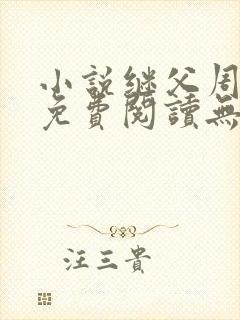 小說继父周
免費閱讀無
汪三貴